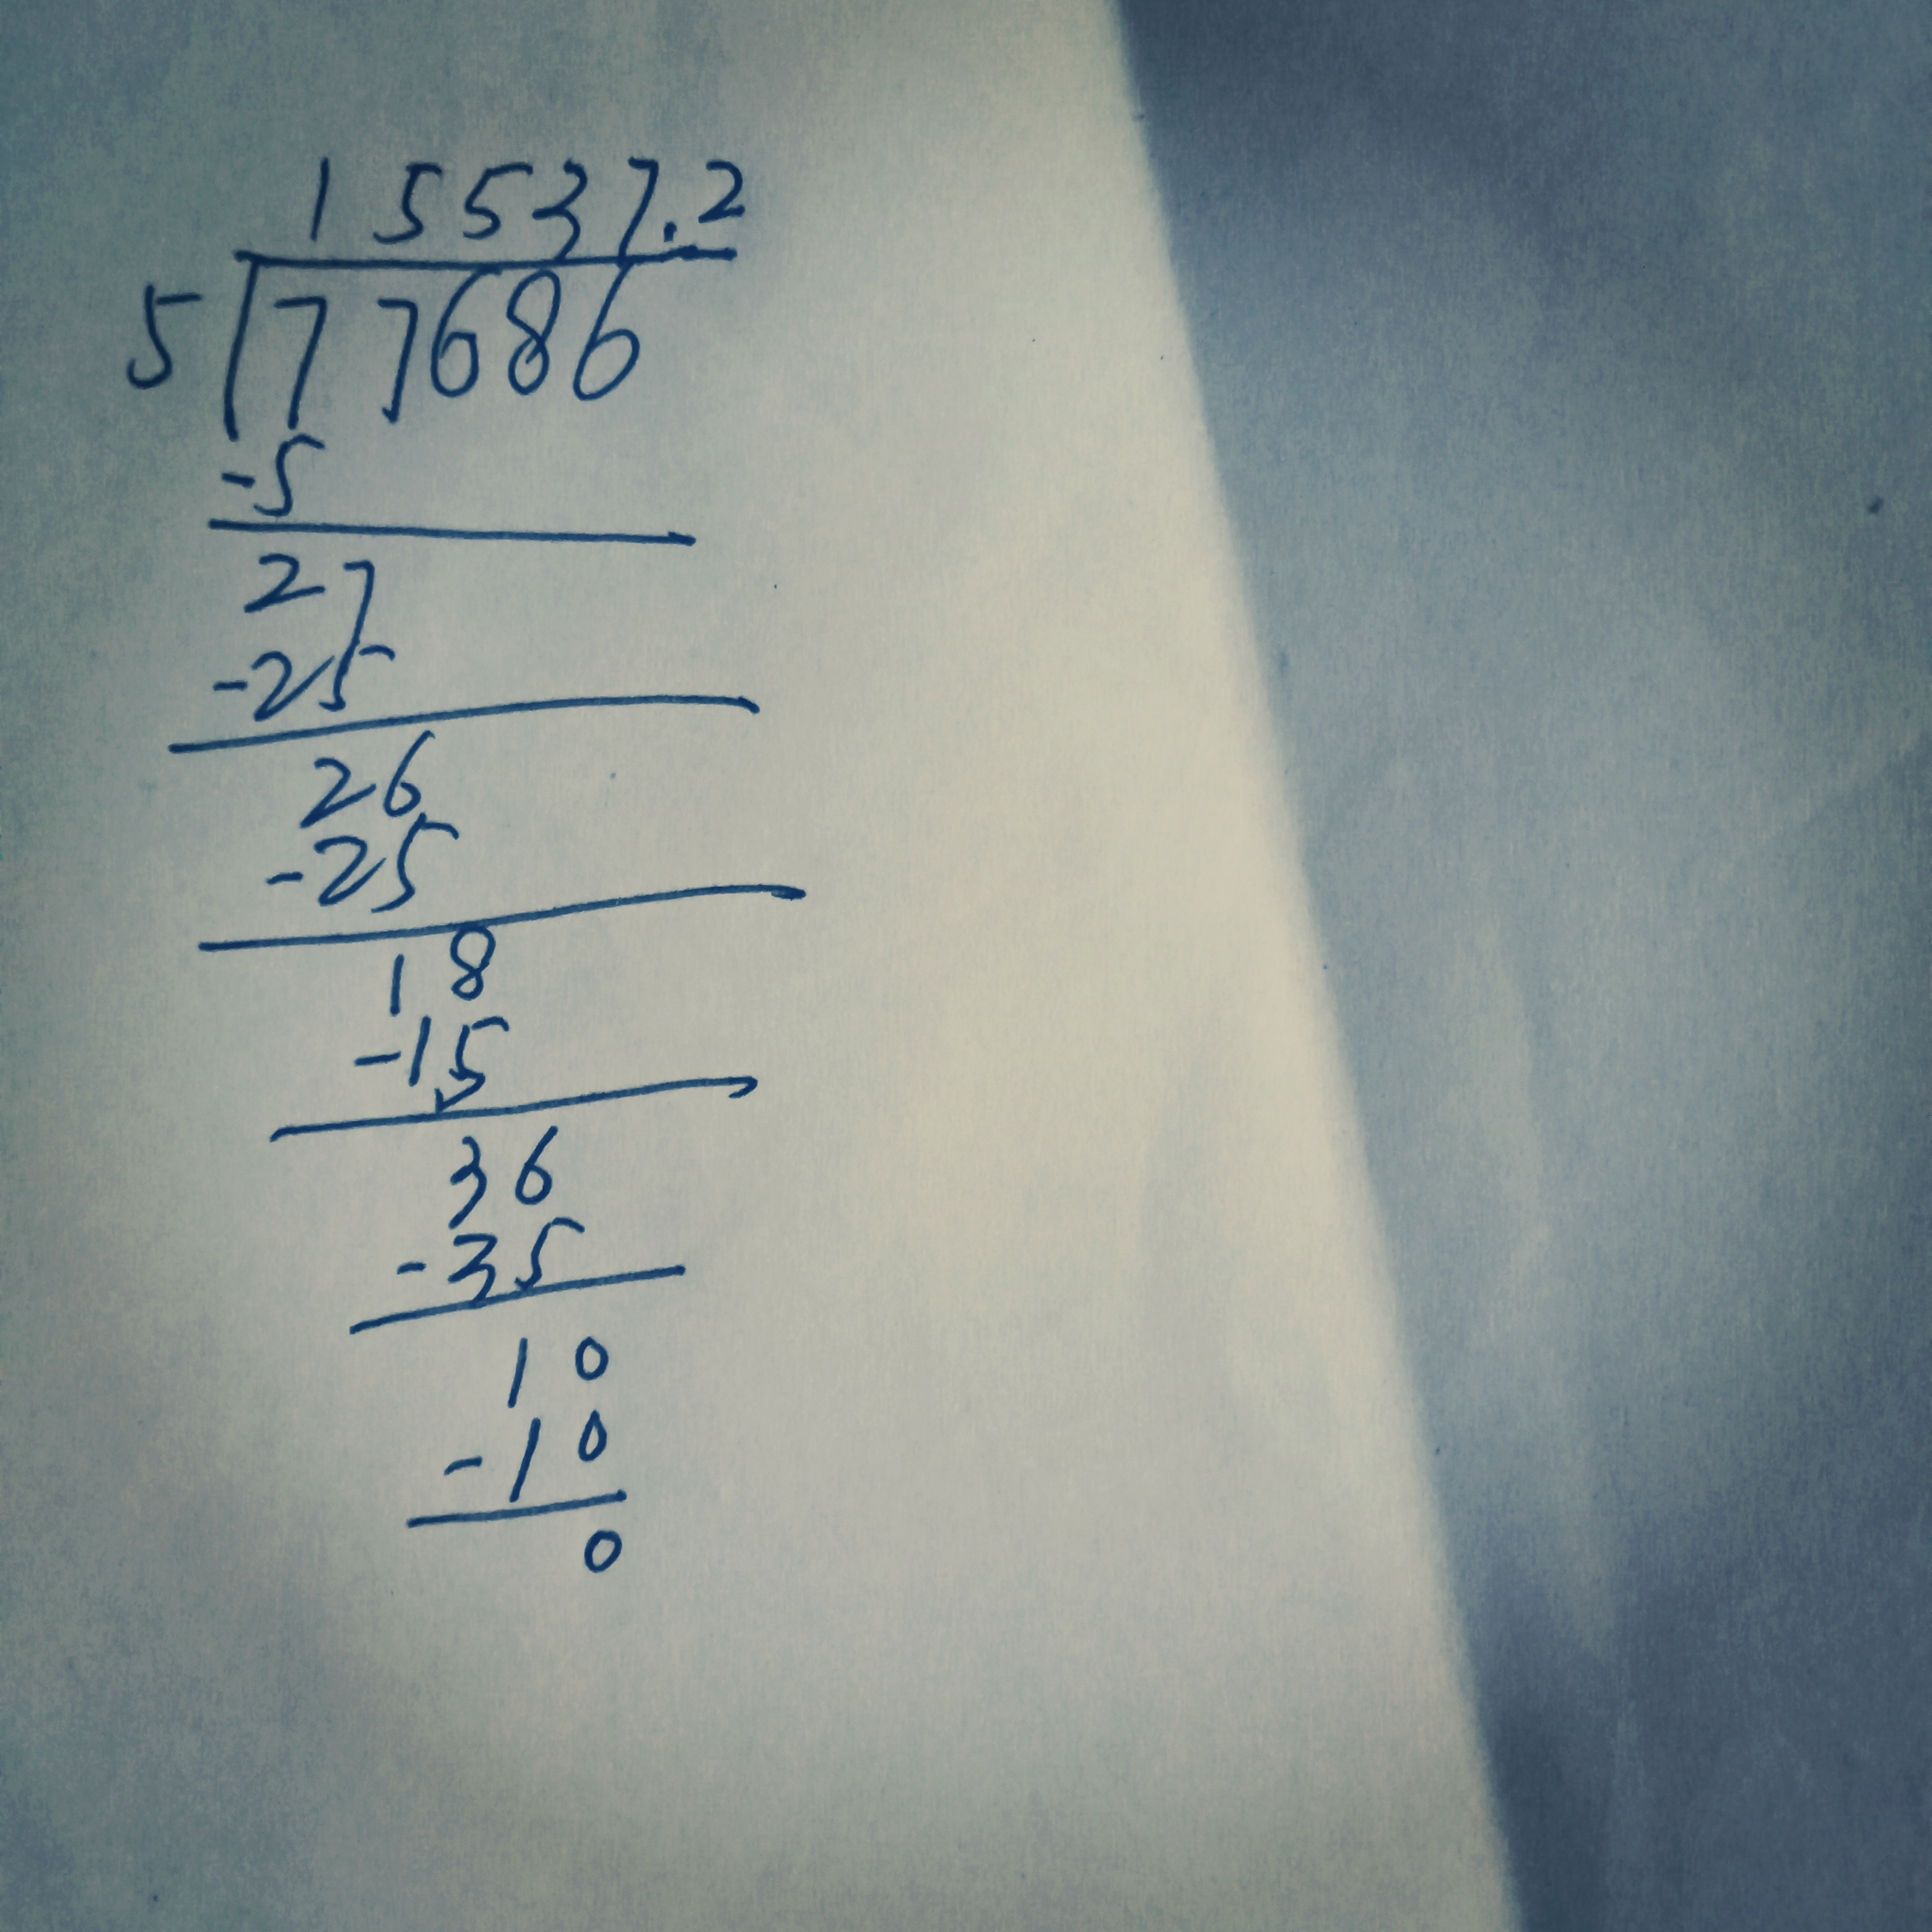 15537.2
5 77686
-5
27
-25
26
-25
18
-15
36
-35
10
-10
0